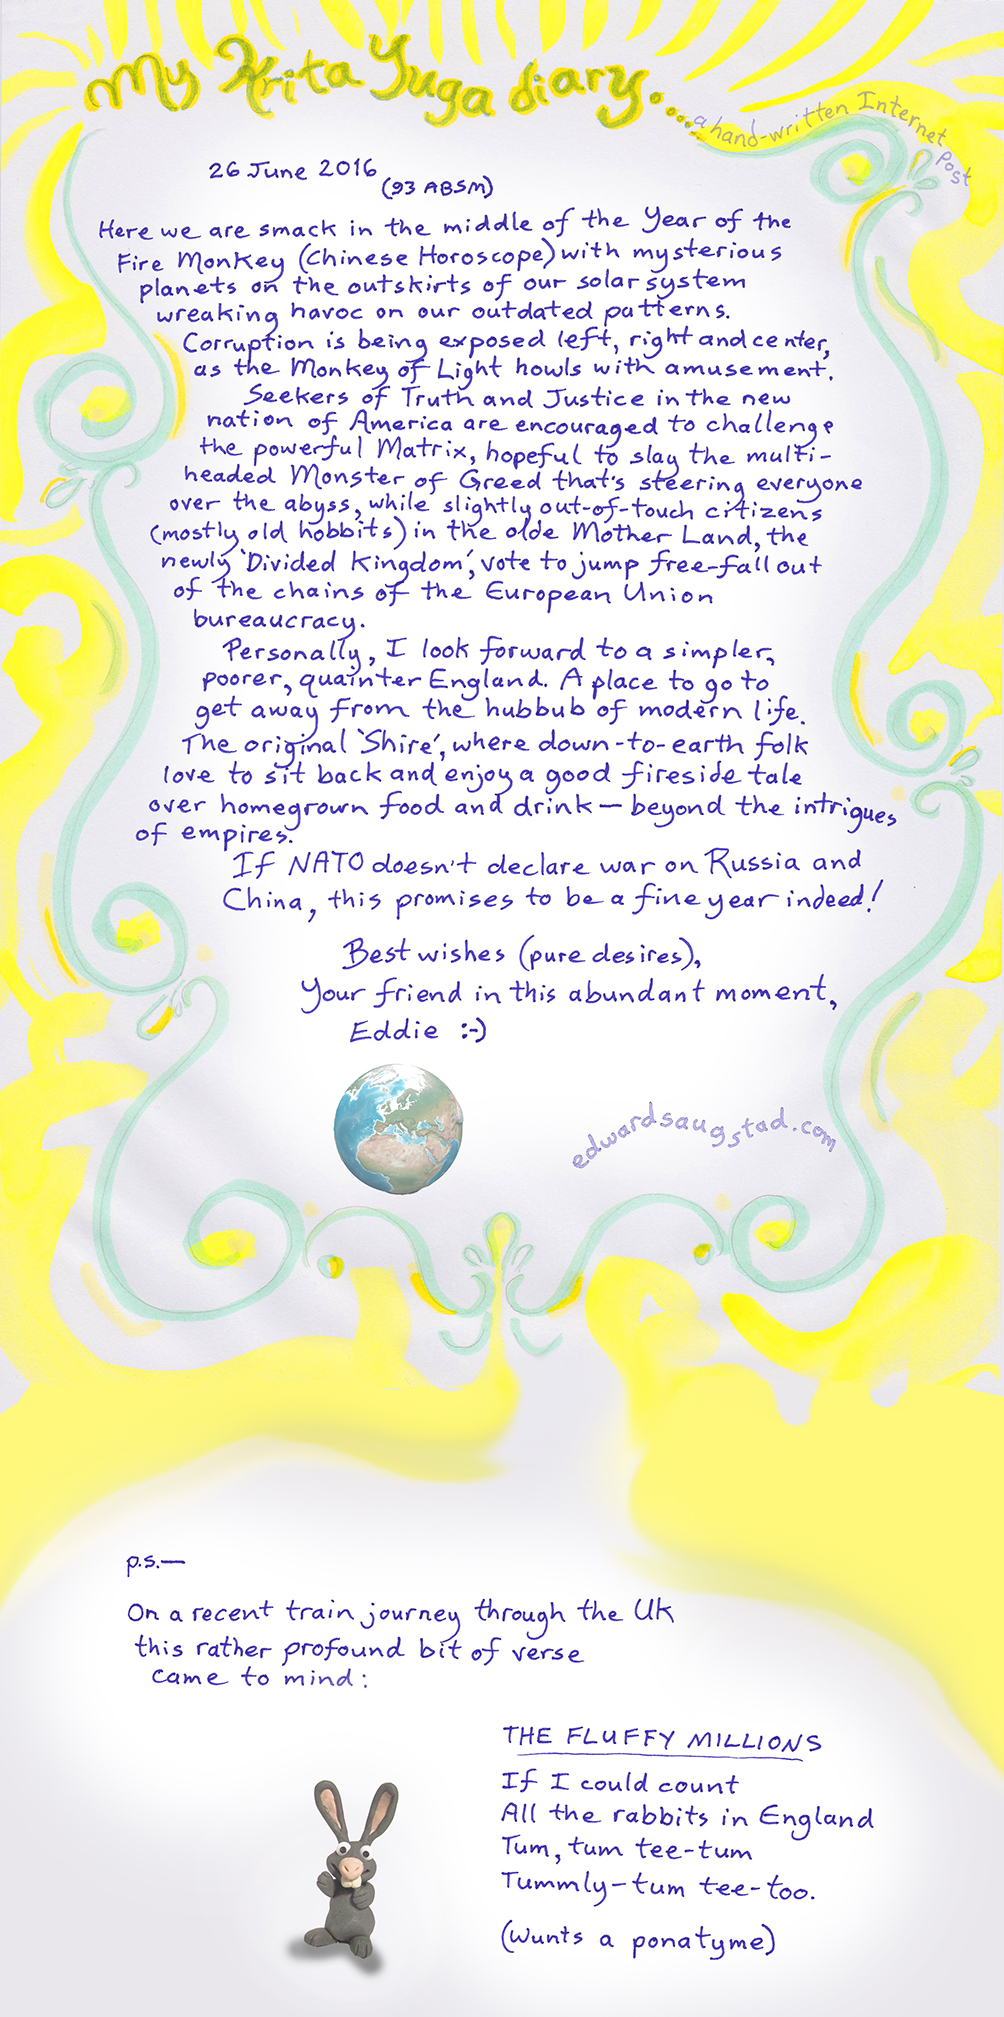 My Krita Yuga diary....a hand-written Internet Post
26 June 2016
(93 ABSM)
Here we are smack in the middle of the Year of the
Fire Monkey (Chinese Horoscope) with mysterious
planets on the outskirts of our solar system
wreaking havoc on our outdated patterns.
Corruption is being exposed left, right and center,
as the Monkey of Light howls with amusement.
Seekers of Truth and Justice in the new
nation of America are encouraged to challenge
the powerful Matrix, hopeful to slay the multi-
headed Monster of Greed that's steering everyone
over the abyss, while slightly out-of-touch citizens
(mostly old hobbits) in the olde Mother Land, the
newly 'Divided Kingdom', vote to jump free-fall out
of the chains of the European Union
bureaucracy.
Personally, I look forward to a simpler,
poorer, quainter England. A place to go to
get away from the hubbub of modern life.
The original 'Shire', where down-to-earth folk
love to sit back and enjoy a good fireside tale
over homegrown food and drink — beyond the intrigues
of empires.
If NATO doesn't declare war on Russia and
China, this promises to be a fine year indeed!
Best wishes (pure desires),
Your friend in this abundant moment,
Eddie :-)
edwardsaugstad.com
p.s.—
On a recent train journey through the UK
this rather profound bit of verse
came to mind:
THE FLUFFY MILLIONS
If I could count
All the rabbits in England
Tum, tum tee-tum
Tummly-tum tee-too.
(Wunts a ponatyme)